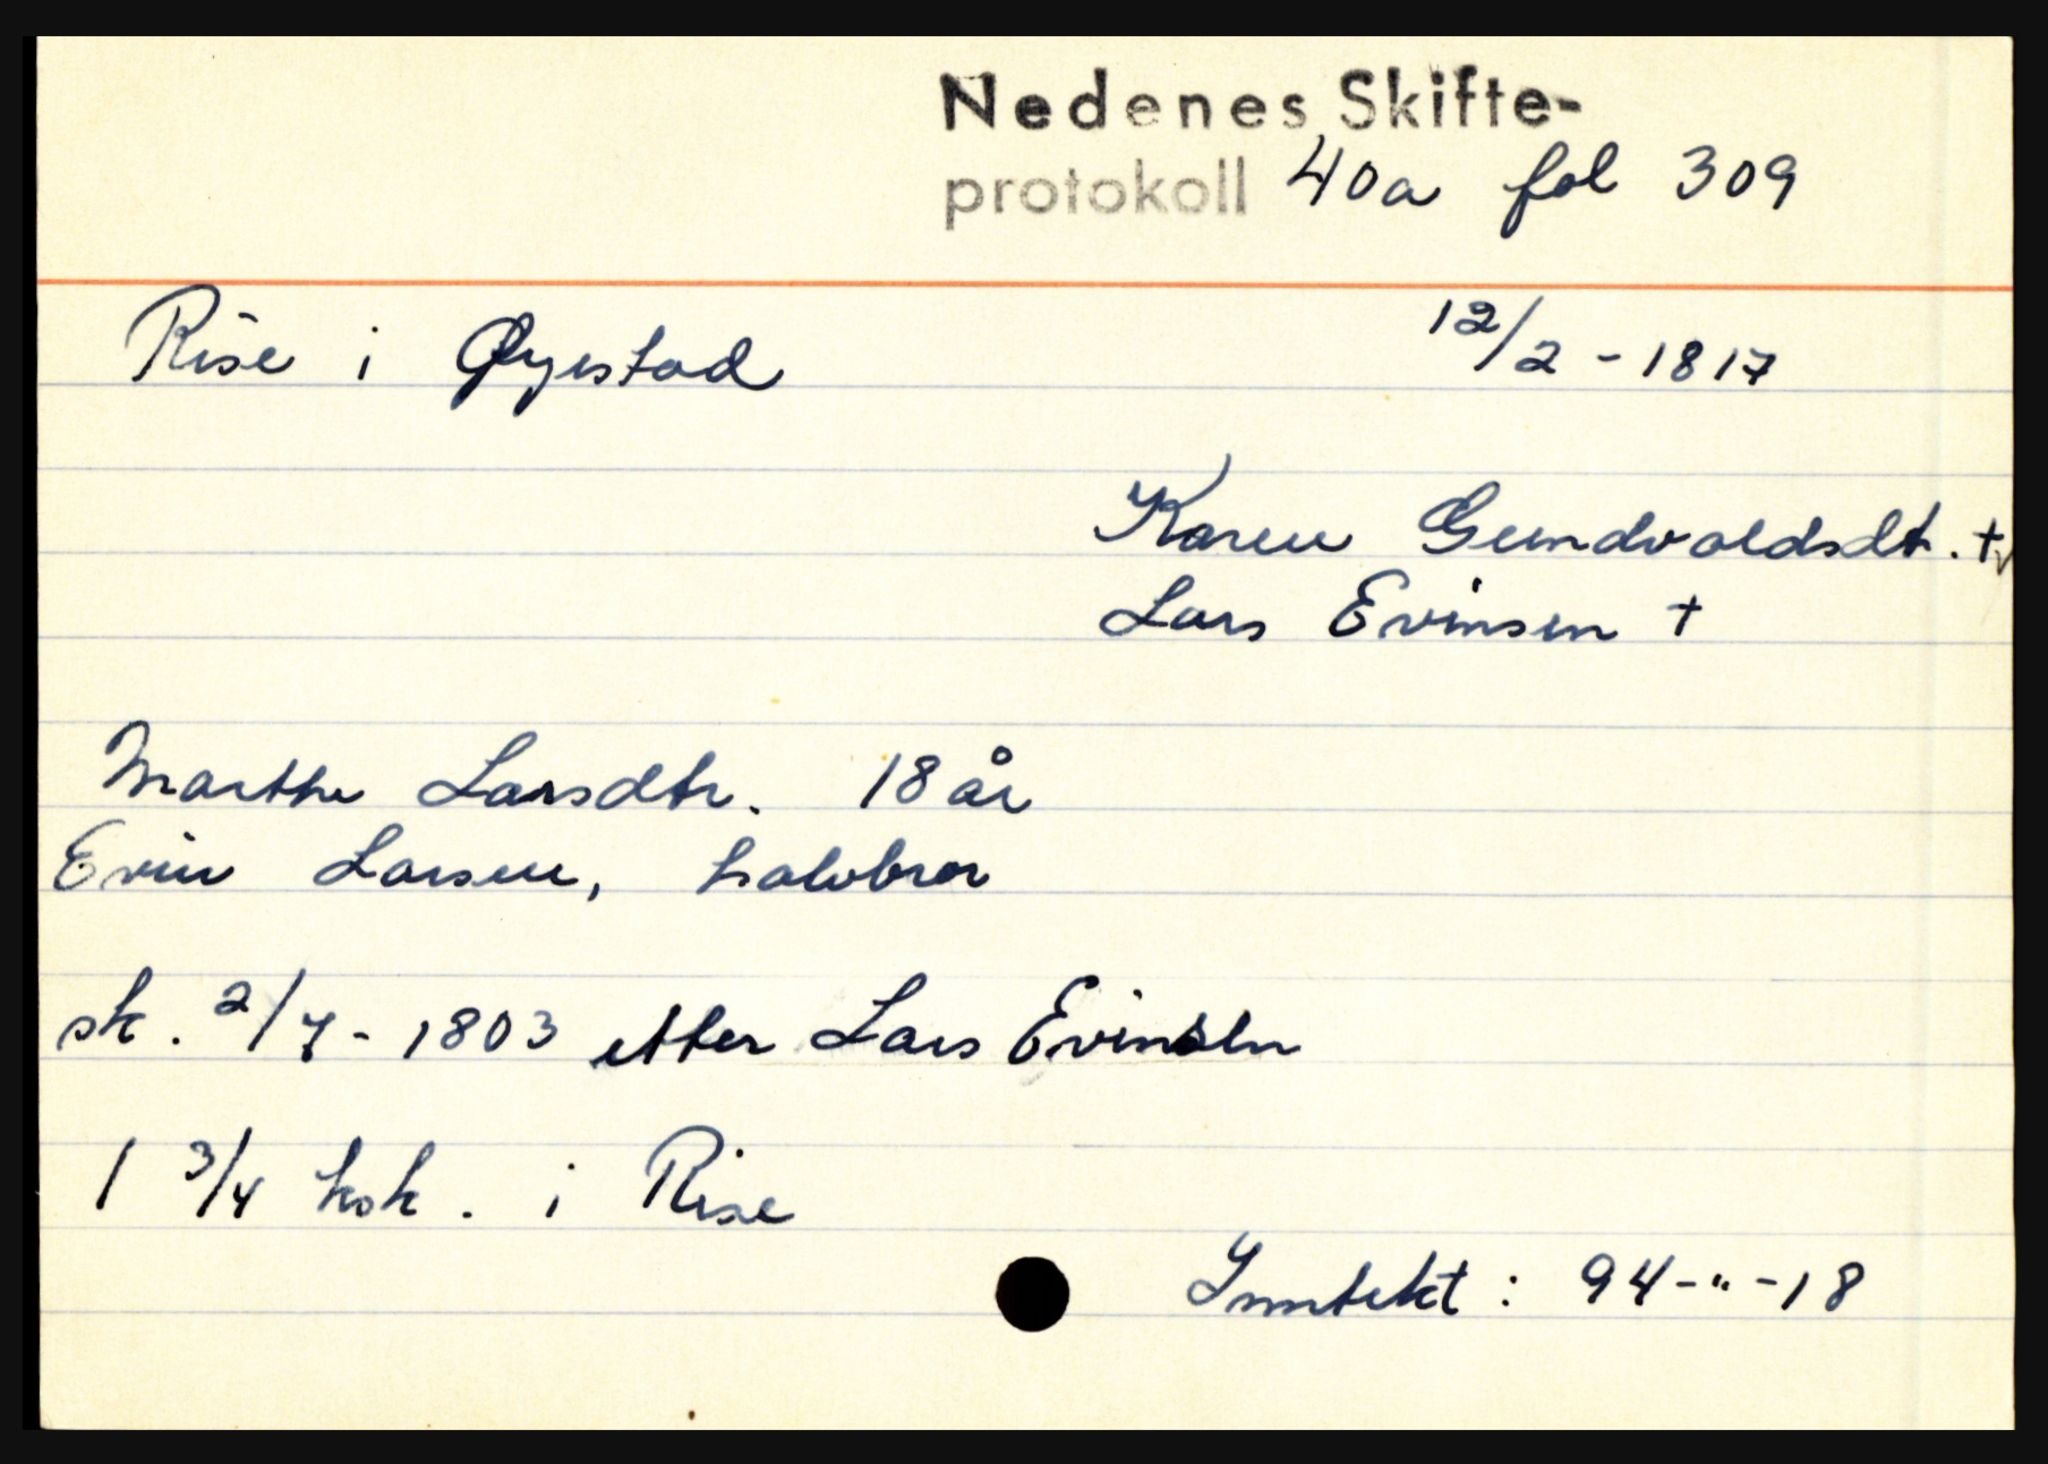 Nedenes Skifte-
protokoll 40a fol 309
Rise i Øyestad 12/2 - 1817
Karen Gundvaldsdt. †
Lars Evinsen †
Marthe Larsdtr. 18 år
Evin Larsen, halvbror
sk. 2/7 - 1803 etter Lars Evinsen
1 3/4 ksk. i Rise
Inntekt : 94-"-18